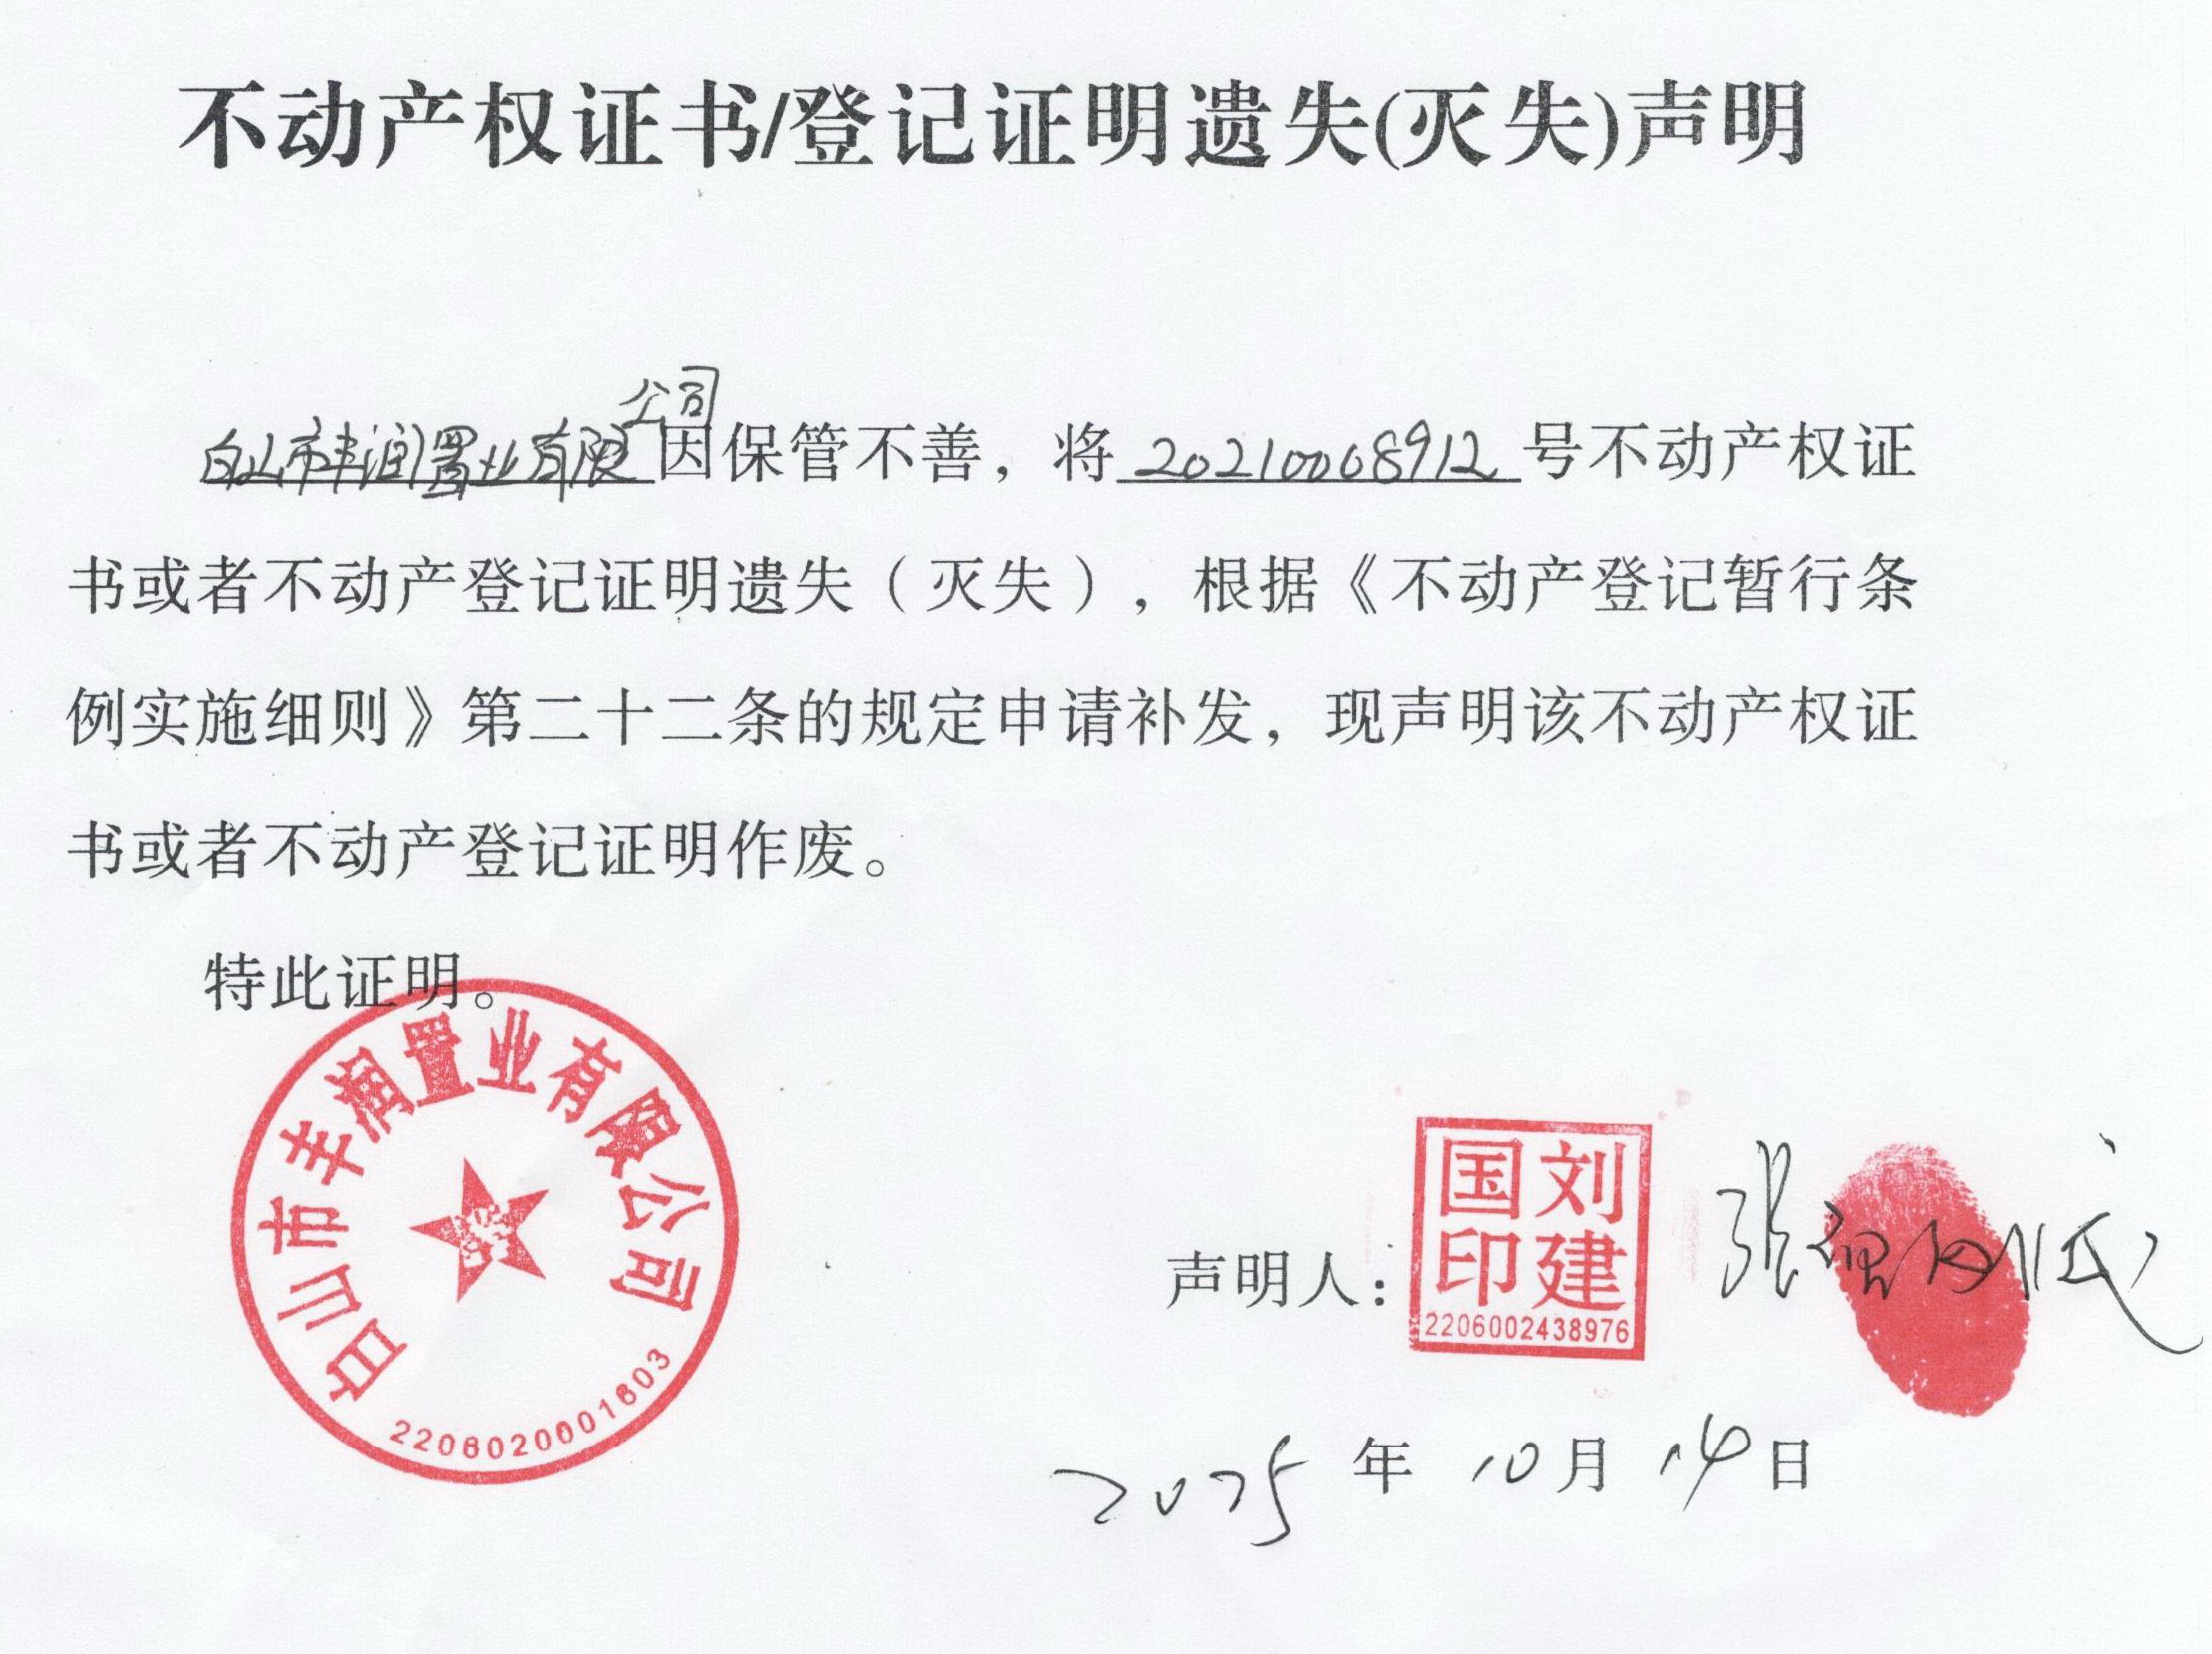 不动产权证书/登记证明遗失(灭失)声明
公司
白山市丰润置业有限因保管不善，将20210008912号不动产权证
书或者不动产登记证明遗失（灭失），根据《不动产登记暂行条
例实施细则》第二十二条的规定申请补发，现声明该不动产权证
书或者不动产登记证明作废。
特此证明。
白山市丰润置业有限公司
2206020001603
声明人：
刘建国印
2206002438976
张
2025年10月14日